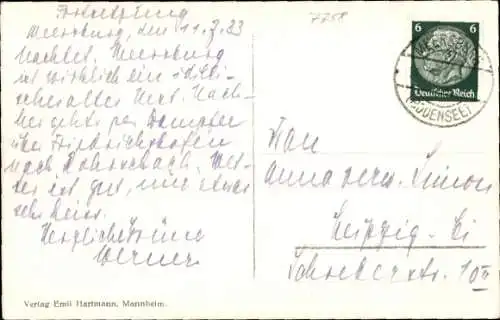 Fortsetzung
Meersburg, den 11.7.33
Nachts. Meersburg
ist wirklich ein idylli-
sches altes Nest. Nach-
her geht's per Dampfer
über Friedrichshafen
nach Rohrschach. Wet-
ter ist gut, nur etwas
sehr heiss.
Herzliche Grüße
Werner
7758
6 6
Deutsches Reich
MEERSBURG
(BODENSEE)
Frau
Anna verw. Simon
Leipzig.
10
Verlag Emil Hartmann, Mannheim.